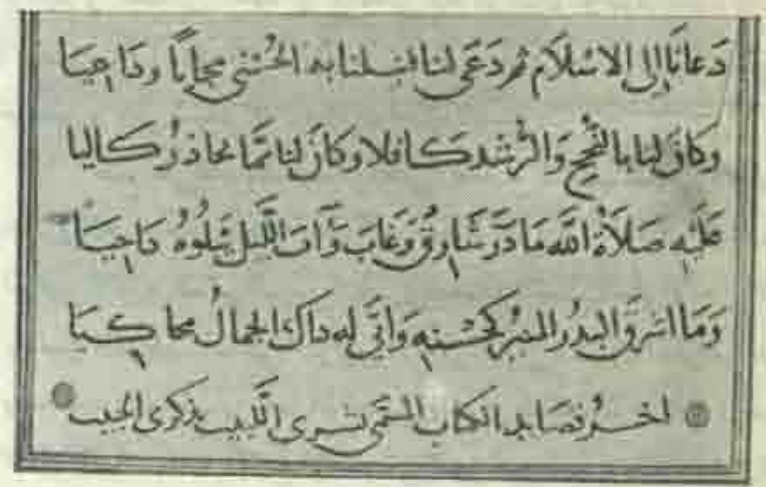 دَعَانَا إِلَى الاسْلَام ثمر دَعَى لنا فنلنا به الحُسْنى مجابًا ودَاعِيَا
وكانَ لنا بالنُّجْحِ وَالرُّشْدِ كافلا وكانَ لنا ممَّا نحاذرُ كاليا
عَلَيْهِ صَلَاةُ الله مَا ذَرَّ شَارِقٌ وَغَابَ وَآبَ اللَّيل يتلُوهُ دَاجيَا
وَمَا اشرقَ البدرُ المنيرُ كحُسْنِهِ وَأنَّى له ذاك الجمالُ محاكيَا
اخرُ قصايد الكتاب المسَمَّى بشرى اللَّبيب بذكرى الحبيب